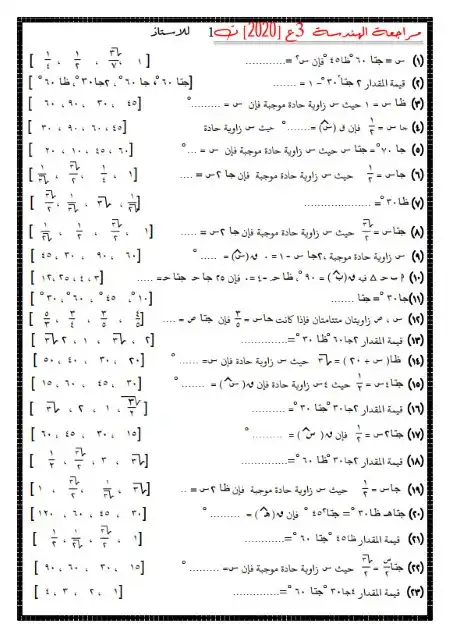 مراجعة الهندسة 3ع [2020] ت1 للاستاذ
(١) س = جتا ٦٠° ظا٤٥° فإن س٢ = ............ [ ١ ، √٣/٢ ، ١/٢ ، ١/٤ ]
(٢) قيمة المقدار ٢ جتا٢ ٣٠° - ١ = ....... [جتا ٦٠° ، جا ٦٠° ، ٢جا ٣٠° ، ظا ٦٠°]
(٣) ظا س = ١ حيث س زاوية حادة موجبة فإن س = ......... ° [ ٤٥ ، ٣٠ ، ٩٠ ، ٦٠ ]
(٤) جا س = ١/٢ فإن ق (س) = .......° حيث س زاوية حادة [ ٤٥ ، ٦٠ ، ٩٠ ، ٣٠ ]
(٥) جا ٧٠° = جتا س حيث س زاوية حادة موجبة فإن س = ...° [ ٦٠ ، ٤٥ ، ١٠ ، ٢٠ ]
(٦) جاس = ١/٢ حيث س زاوية حادة موجبة فإن جا ٢س = .... [ ١ ، ١/٤ ، √٣/٢ ، ١/√٣ ]
(٧) ظا ٣٠° = ....................
(٨) جتاس = √٣/٢ حيث س زاوية حادة موجبة فإن جا ٢س = .....
(٩) س زاوية حادة موجبة ، ٢جا س - ١ = ٠ ق(س) = ..... ° [ ٦٠ ، ٩٠ ، ٣٠ ، ٤٥ ]
(١٠) ا ب حـ △ فيه ق(ب) = ٩٠° ، ظا حـ - ٤ = ٠ فإن ٢٥ جا حـ جتا حـ = ..... [ ٤ ، ٣ ، ٢٥ ، ١٢ ]
(١١) جا ٣٠° = جتا ....... [ ١٠° ، ٤٥° ، ٦٠° ، ٣٠° ]
(١٢) س ، ص زاويتان متتامتان فإذا كانت جاس = ٣/٥ فإن جتا ص = .... [ ٤/٥ ، ٣/٥ ، ٣/٤ ، ٥/٣ ]
(١٣) قيمة المقدار ٢جا ٦٠° ظا ٣٠° = .............. [ ٢ ، √٣ ، ١ ، ٢√٣ ]
(١٤) ظا( س + ٢٠ ) = √٣ حيث س زاوية حادة فإن س = ...... ° [ ٢٠ ، ٣٠ ، ٤٠ ، ٥٠ ]
(١٥) جتا ٤س = ١/٢ حيث ٤س زاوية حادة فإن ق( س ) = ....... ° [ ٣٠ ، ٤٥ ، ٦٠ ، ١٥ ]
(١٦) قيمة المقدار ٢جا ٣٠° جتا ٣٠° = .......... [ √٣/٢ ، ١ ، ٢ ، √٣ ]
(١٧) جتا ٢س = ١/٢ فإن ق( س ) = ......... ° [ ١٥ ، ٣٠ ، ٤٥ ، ٦٠ ]
(١٨) قيمة المقدار ٢جا ٣٠° ظا ٦٠° = ............. [ √٣ ، ٣ ، √٣/٢ ، ١/٢ ]
(١٩) جاس = ١/٢ حيث س زاوية حادة موجبة فإن ظا ٢س = ..
(٢٠) جتاهـ ظا ٣٠° = جتا٢ ٤٥° فإن ق( هـ ) = .......... ° [ ٣٠ ، ٤٥ ، ٦٠ ، ١٢٠ ]
(٢١) قيمة المقدار ظا ٤٥° جتا ٦٠° = .............
(٢٢) جتا س/٢ = √٣/٢ حيث س زاوية حادة موجبة فإن س = ......... ° [ ١٥ ، ٣٠ ، ٦٠ ، ٩٠ ]
(٢٣) قيمة المقدار ٤جا ٣٠° جتا ٦٠° = .............. [ ١ ، ٢ ، ٣ ، ٤ ]